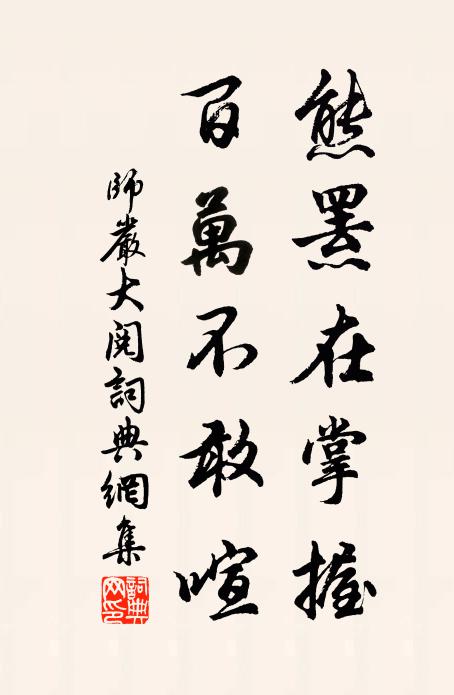 熊羆在掌握
百萬不敢喧
師嚴大閱詞典網集
詞典
网印